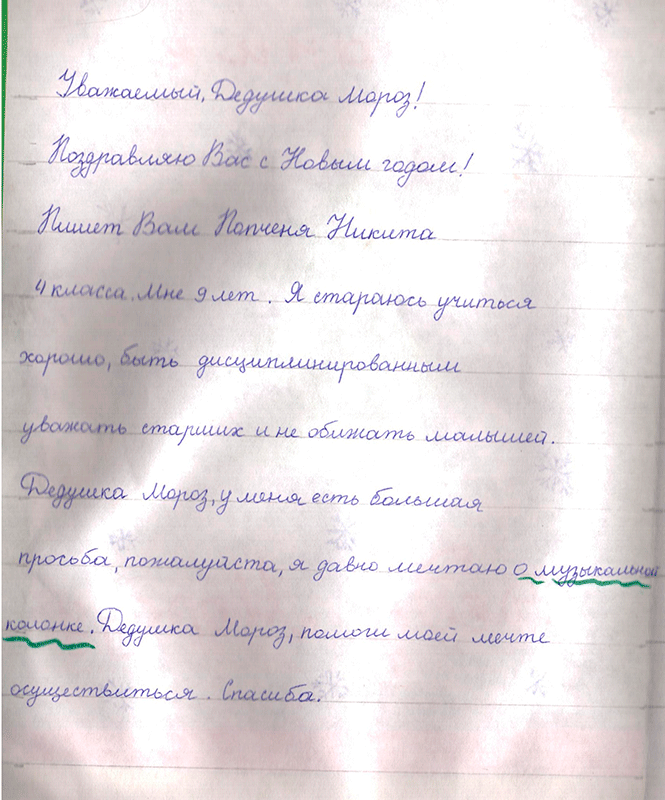 Уважаемый, Дедушка Мороз!
Поздравляю Вас с Новым годом!
Пишет Вам Попченя Никита
4 класса. Мне 9 лет. Я стараюсь учиться
хорошо, быть дисциплинированным
уважать старших и не обижать малышей.
Дедушка Мороз, у меня есть большая
просьба, пожалуйста, я давно мечтаю о музыкальной
колонке. Дедушка Мороз, помоги моей мечте
осуществиться. Спасиба.